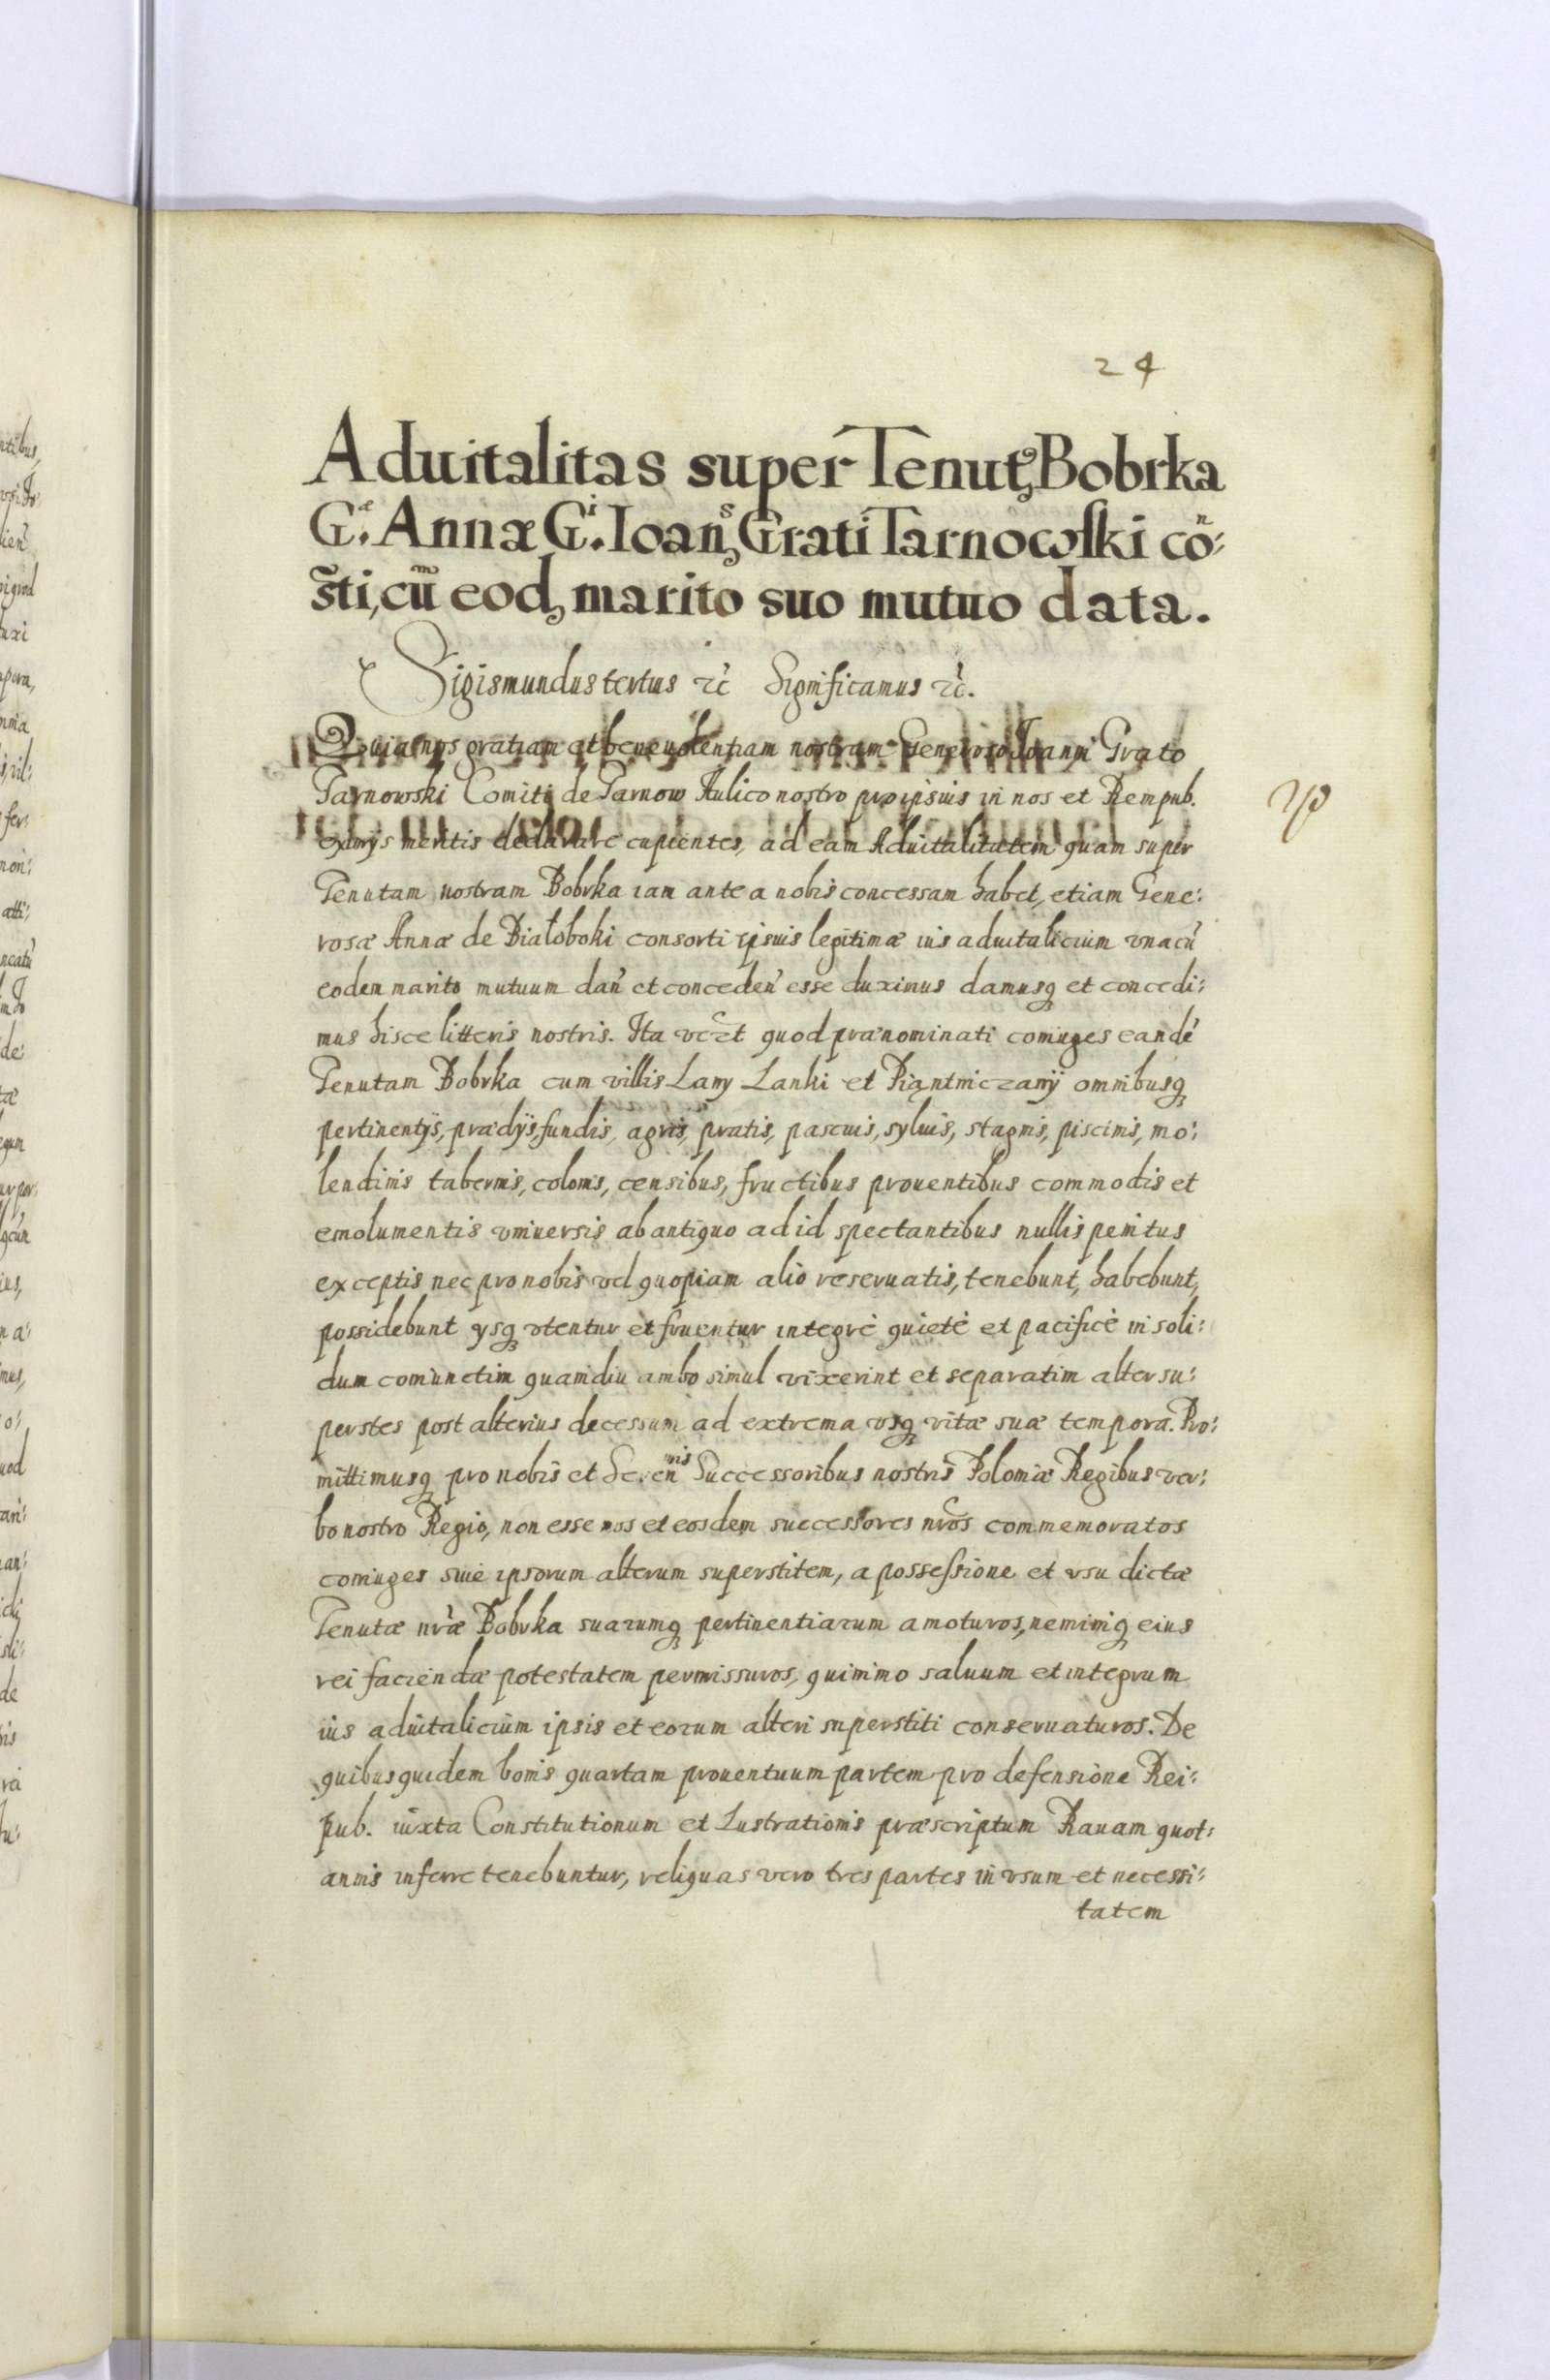 24
Aduitalitas super Tenut Bobrka
G.æ Annæ G.i Ioan.s Grati Tarnowski con:
sti, cum eod marito suo mutuo data.
Sigismundus tertius etc Significamus etc.
Quia nos gratiam et beneuolentiam nostram Generoso Ioanni Grato
Tarnowski Comiti de Tarnow Aulico nostro pro ipsius in nos et Rempub.
eximijs meritis declarare cupientes, ad eam Aduitalitatem quam super
Tenutam nostram Bobrka iam ante a nobis concessam habet, etiam Gene:
rosæ Annæ de Białoboki consorti ipsius legitimæ ius aduitalicium vnacū
eodem marito mutuum dan̄ et conceden̄ esse duximus damusq et concedi:
mus hisce litteris nostris. Ita vt quod prænominati coniuges eandē
Tenutam Bobrka cum villis Lany Lanki et Piąntniczany omnibusq
pertinentijs, prædijs, fundis, agris, pratis, pascuis, syluis, stagnis, piscinis, mo:
lendinis tabernis, colonis, censibus, fructibus prouentibus commodis et
emolumentis vniuersis ab antiquo ad id spectantibus nullis penitus
exceptis nec pro nobis vel quopiam alio reseruatis, tenebunt, habebunt,
possidebunt ysq vtentur et fruentur integrè quietè et pacificè in soli:
dum coniunctim quamdiu ambo simul vixerint et separatim alter su:
perstes post alterius decessum ad extrema vsq vitæ suæ tempora. Pro:
mittimusq pro nobis et Seren.nis Successoribus nostris Poloniæ Regibus ver:
bo nostro Regio, non esse nos et eosdem successores nr̄os commemoratos
coniuges siue ipsorum alterum superstitem, a possessione et vsu dictæ
Tenutæ nr̄æ Bobrka suarumq pertinentiarum amoturos, neminiq eius
rei faciendæ potestatem permissuros, quinimo saluum et integrum
ius aduitalicium ipsis et eorum alteri superstiti conseruaturos. De
quibus quidem bonis quartam prouentuum partem pro defensione Rei:
pub. iuxta Constitutionum et Lustrationis præscriptum Rauam quot:
annis inferre tenebuntur, reliquas vero tres partes in vsum et necessi:
tatem